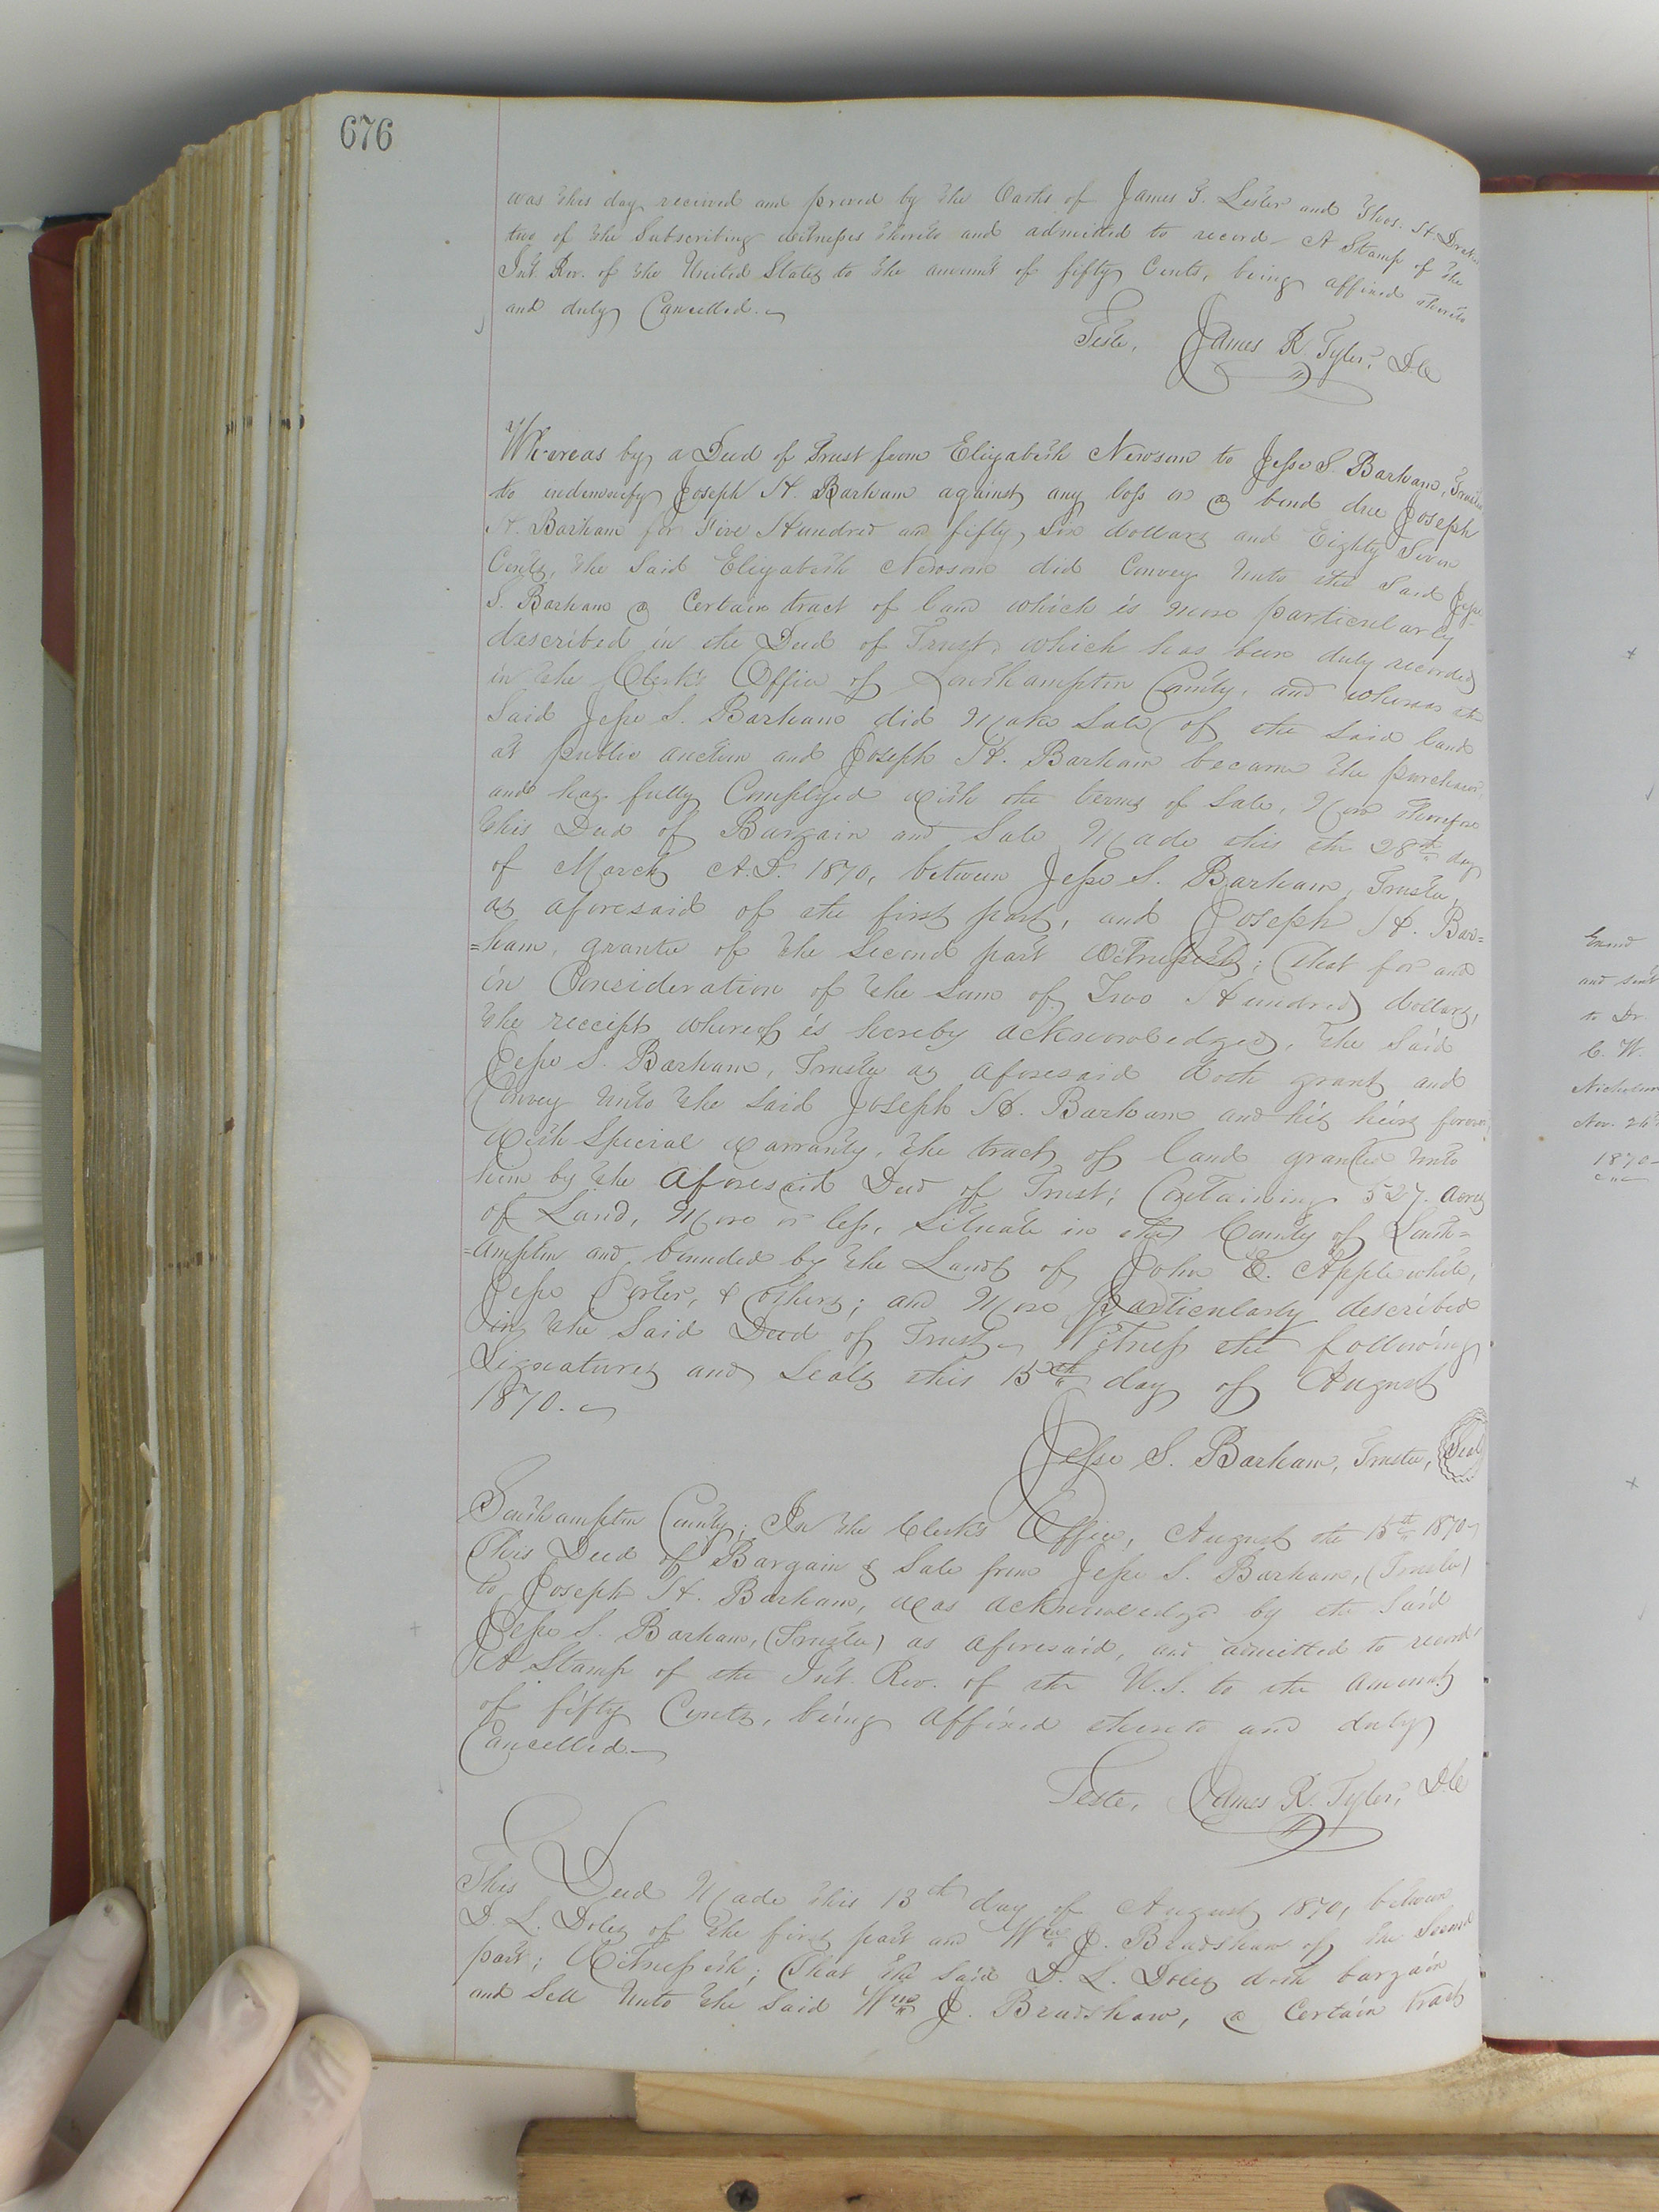 676
was this day received and proved by the Oaths of James T. Lester and Thos. H. Drake
two of the Subscribing witnesses thereto and admitted to record - A Stamp of the
Int. Rev. of the United States to the amount of fifty Cents, being affixed thereto
and duly Cancelled.
Teste, James R. Tyler, D.C
Whereas by a Deed of Trust from Elizabeth Newsom to Jesse S. Barham, Trustee
to indemnify Joseph H. Barham against any loss on a bond due Joseph
H. Barham for Five Hundred and fifty six dollars and Eighty Seven
Cents, the Said Elizabeth Newsom did Convey Unto the Said Jesse
S. Barham a Certain tract of land which is more particularly
described in the Deed of Trust, which has been duly recorded
in the Clerk's Office of Southampton County, and whereas the
Said Jesse S. Barham did Make Sale of the said land
at public auction and Joseph H. Barham became the purchaser,
and has fully Complyed with the terms of Sale, Now therefore
this Deed of Bargain and Sale Made this the 28th day
of March A.D. 1870, between Jesse S. Barham, Trustee,
as aforesaid of the first part, and Joseph H. Bar=
=ham, grantee of the Second part Witnesseth; That for and
in Consideration of the Sum of Two Hundred dollars,
the receipt whereof is hereby acknowledged, the Said
Jesse S. Barham, Trustee as aforesaid doth grant and
Convey Unto the said Joseph H. Barham and his heirs forever,
With Special Warranty, the tract of land granted Unto
him by the Aforesaid Deed of Trust; Containing 527. Acres
of Land, More or less, Situate in the County of South=
=ampton and bounded by the Lands of John E. Applewhite,
Jesse Porter, & others; and More particularly described
in the Said Deed of Trust. Witness the following
Signatures and Seals this 15th day of August
1870.
Jesse S. Barham, Trustee, Seal
Southampton County; In the Clerk's Office, August the 15th 1870
This Deed of Bargain & Sale from Jesse S. Barham, (Trustee)
to Joseph H. Barham, was acknowledged by the Said
Jesse S. Barham, (Trustee) as aforesaid, and admitted to record,
A Stamp of the Int. Rev. of the U.S. to the amount
of fifty Cents, being affixed thereto and duly
Cancelled.
Teste, James R. Tyler, D.C
This Deed Made this 13th day of August 1870, between
D. L. Doles of the first part and Wm J. Bradshaw of the Second
part; Witnesseth; That the Said D. L. Doles doth bargain
and Sell Unto the Said Wm J. Bradshaw, a Certain tract
and sent
to Dr.
C. W.
Nicholson
Nov. 26
1870